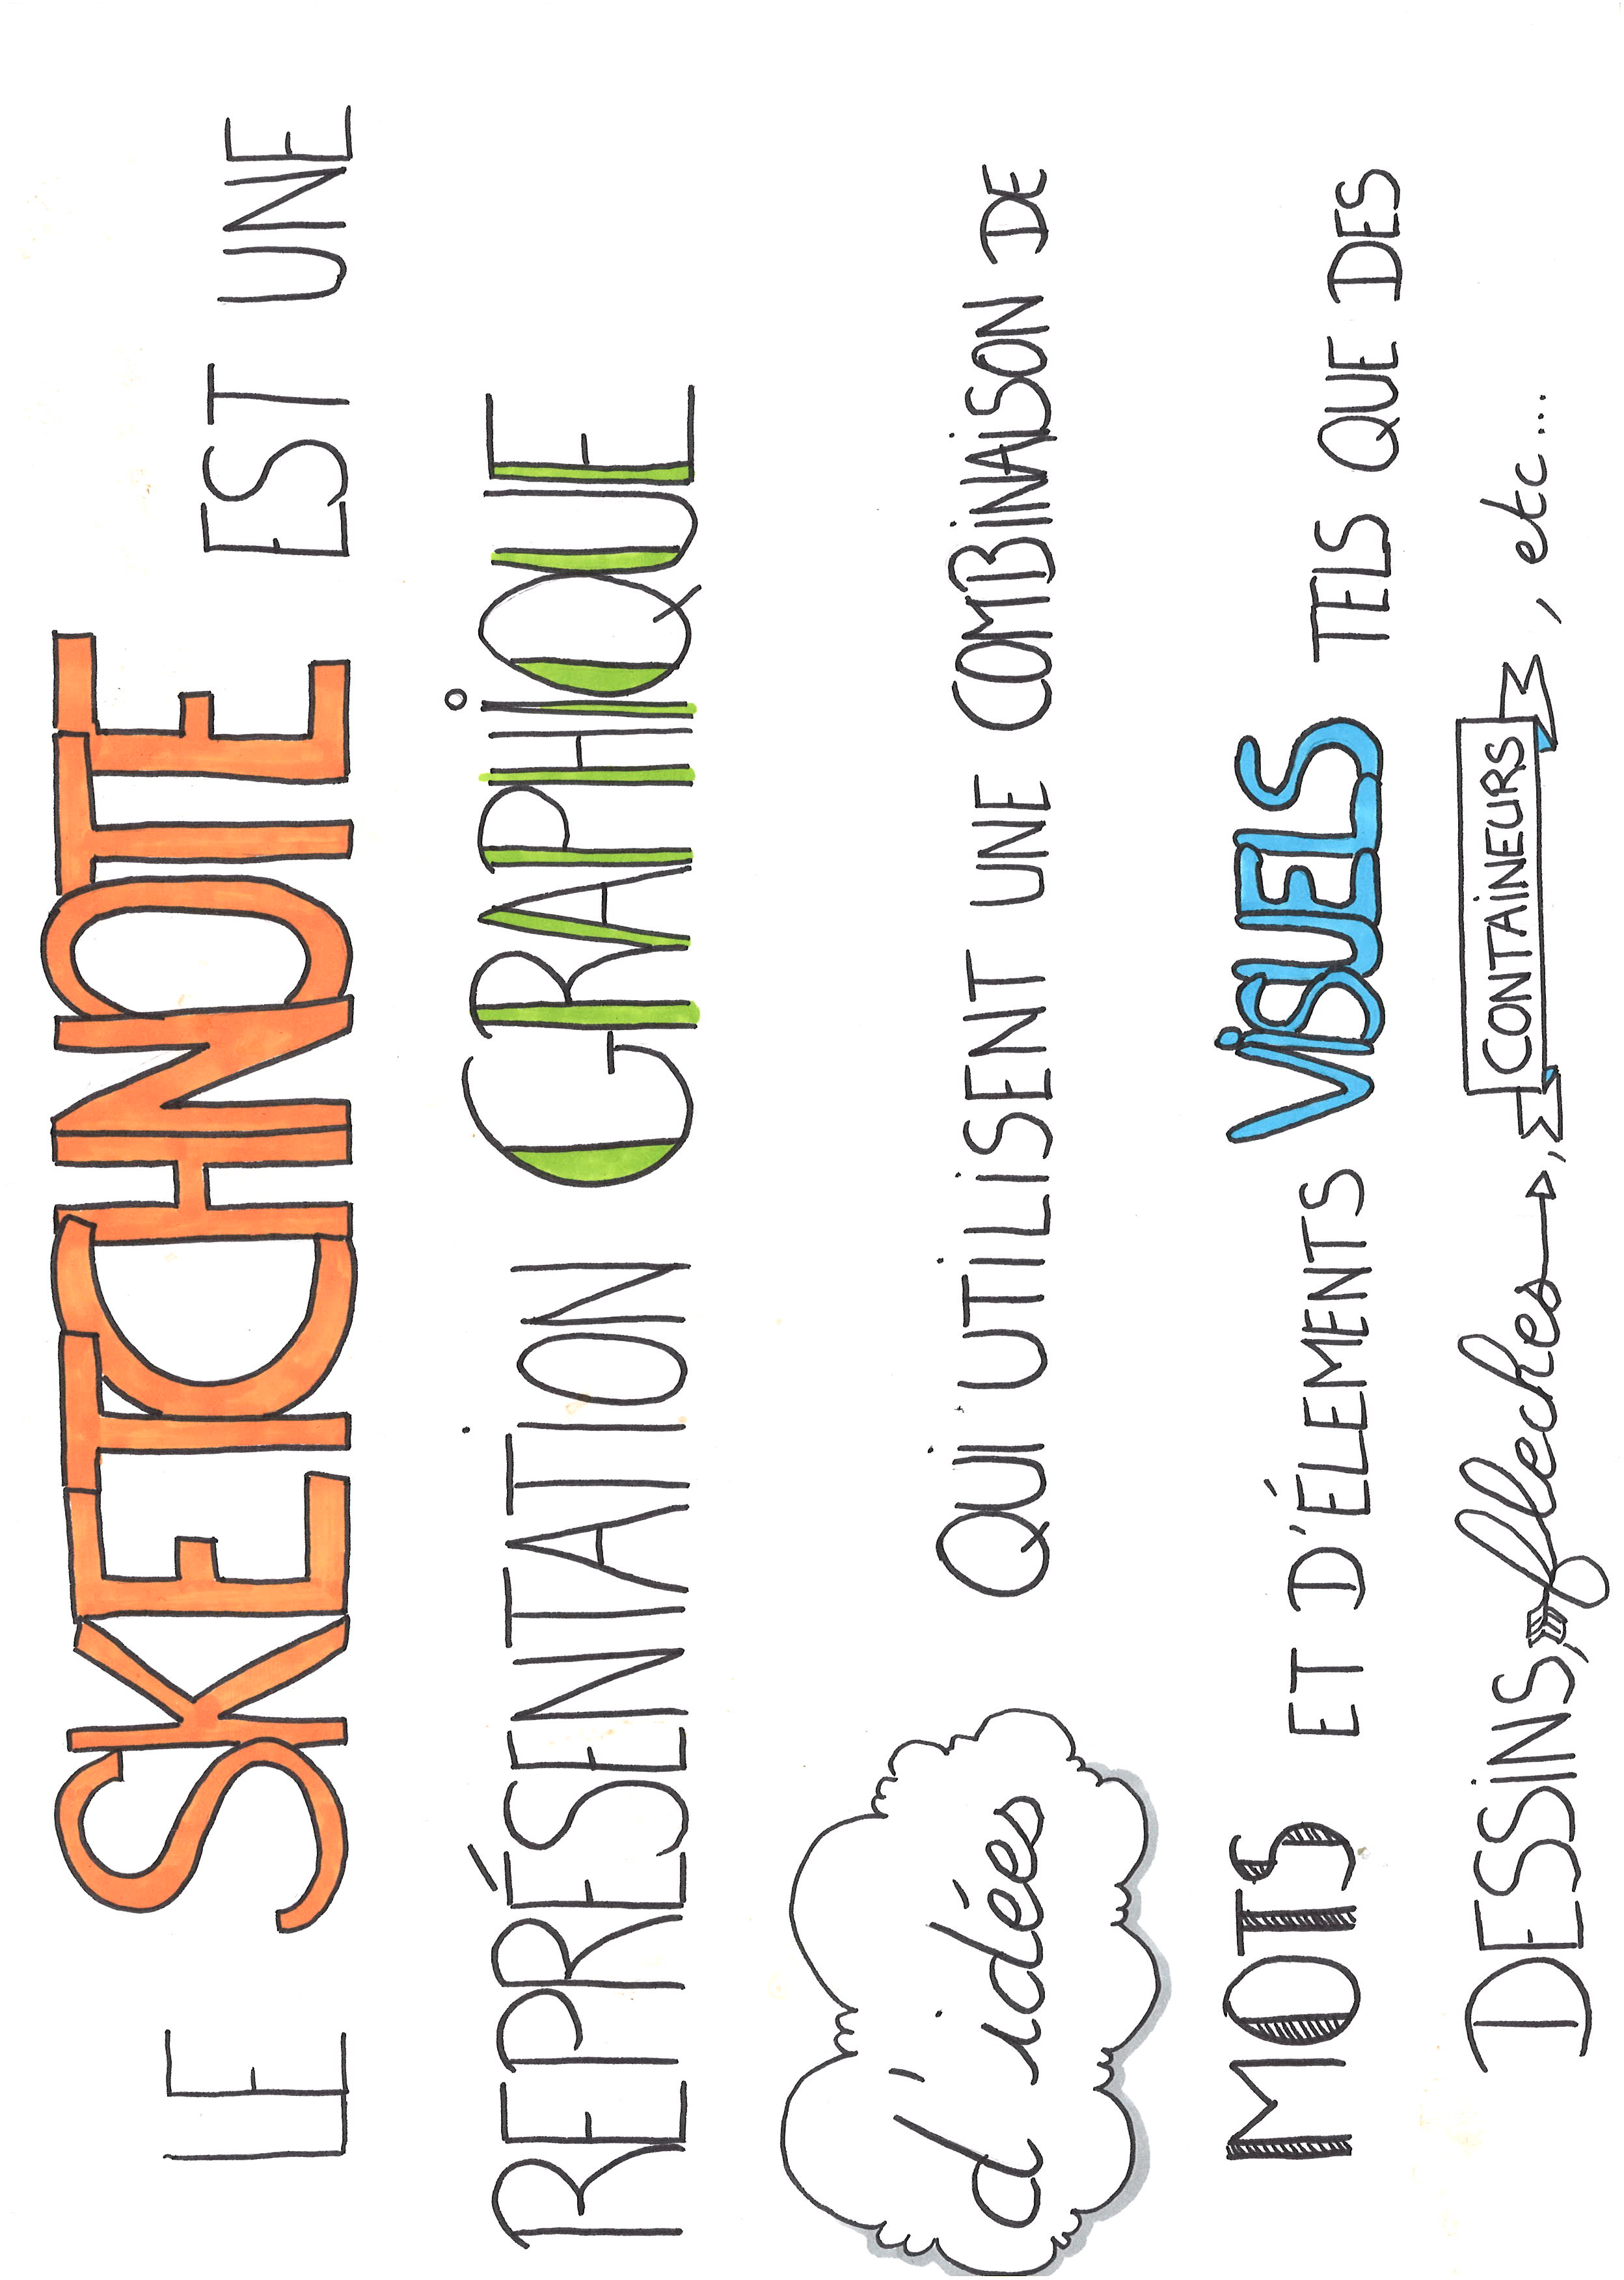 LE SKETCHNOTE EST UNE
REPRÉSENTATION GRAPHIQUE
d'idées QUI UTILISENT UNE COMBINAISON DE
MOTS ET D'ÉLEMENTS VISUELS TELS QUE DES
DESSINS, fleches, CONTAINEURS, etc...